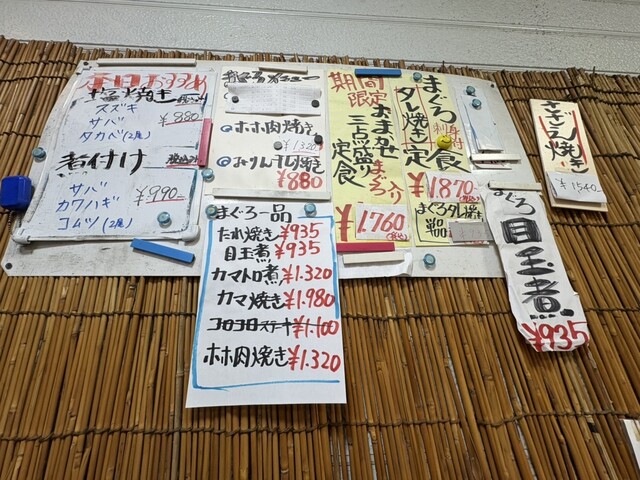 本日おすすめ
塩焼き
スズキ
サバ
タカベ(2尾)
¥880
煮付け
サバ
カワハギ
コムツ(2尾)
¥990
ホホ肉焼き
¥1320
¥880
まぐろ一品
たれ焼き¥935
目玉煮¥935
カマトロ煮¥1.320
カマ焼き¥1.980
コロコロステーキ¥1.100
ホホ肉焼き¥1.320
期間
限定
三点盛り
定食
まぐろ入り
¥1.760
まぐろ
タレ焼き
刺身付
定食
¥1870
(税込)
まぐろタレ焼き
単品
さざえ焼き
¥1540
まぐろ
目玉煮
¥935